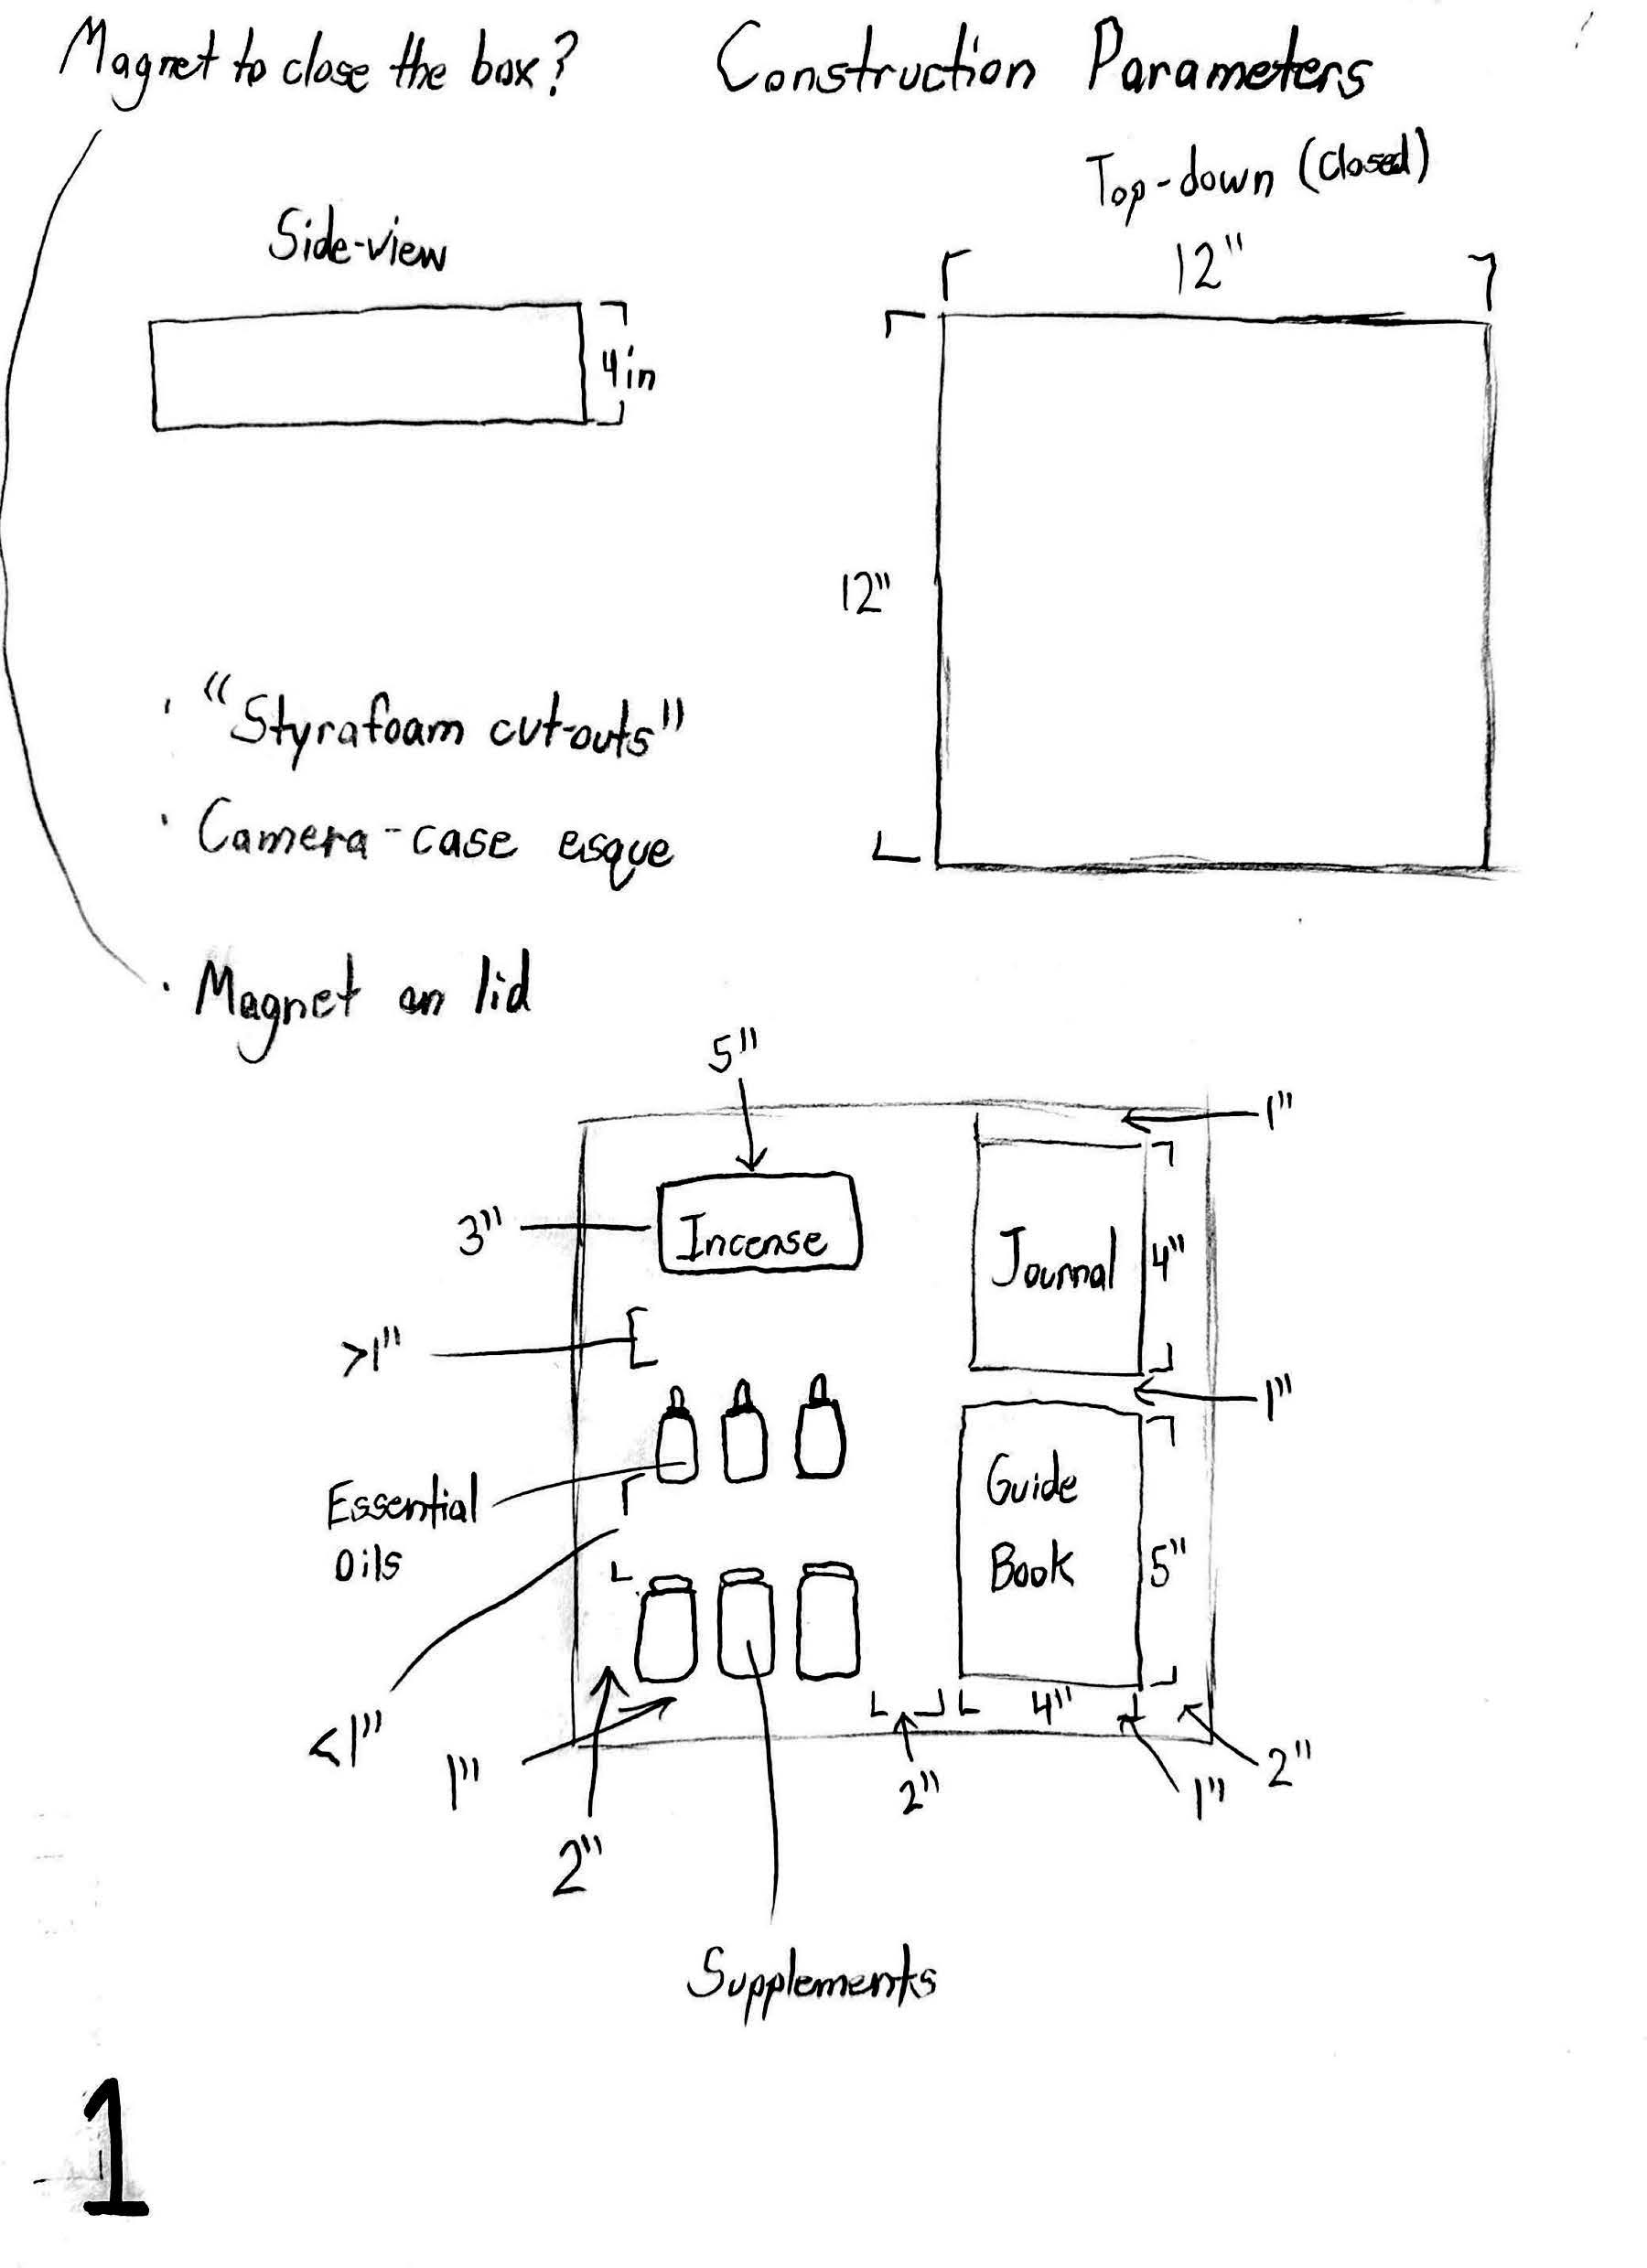 Magnet to close the box?
Construction Parameters
Top-down (closed)
12"
Side-view
4in
12"
· "Styrafoam cut-outs"
· Camera-case esque
· Magnet on lid
5"
1"
3"
Incense
Journal
4"
>1"
1"
Guide
Book
5"
Essential
Oils
<1"
1"
2"
4"
2"
1"
2"
Supplements
1